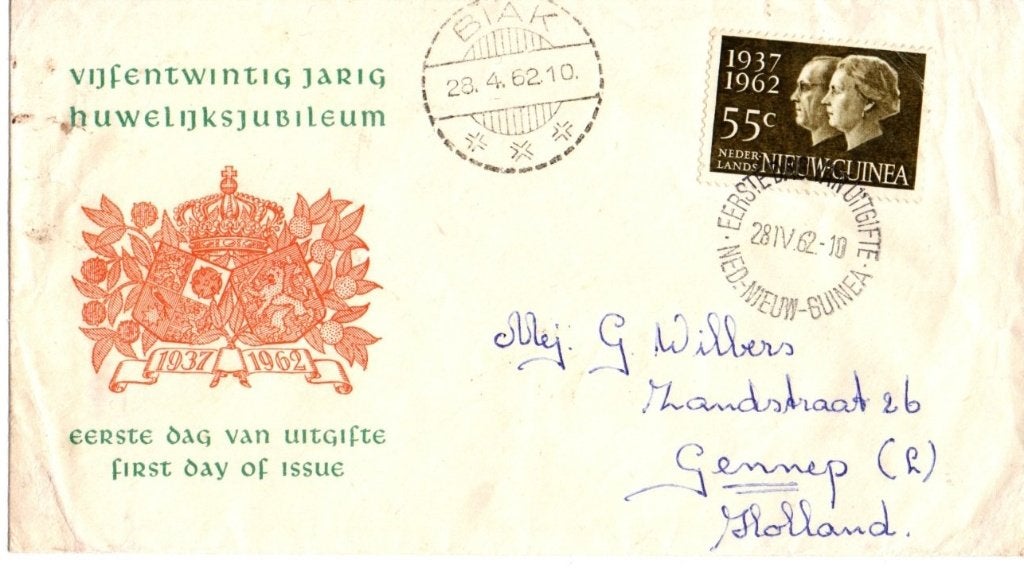 VIJFENTWINTIG JARIG
HUWELIJKSJUBILEUM
BIAK
28.4.62.10.
1937
1962
55c
NEDER-
LANDS NIEUW-GUINEA
EERSTE DAG VAN UITGIFTE
28 IV.62-10
NED-NIEUW-GUINEA
1937 1962
Mej. G. Willbers
Zandstraat 26
Gennep (L)
Holland.
EERSTE DAG VAN UITGIFTE
FIRST DAY OF ISSUE